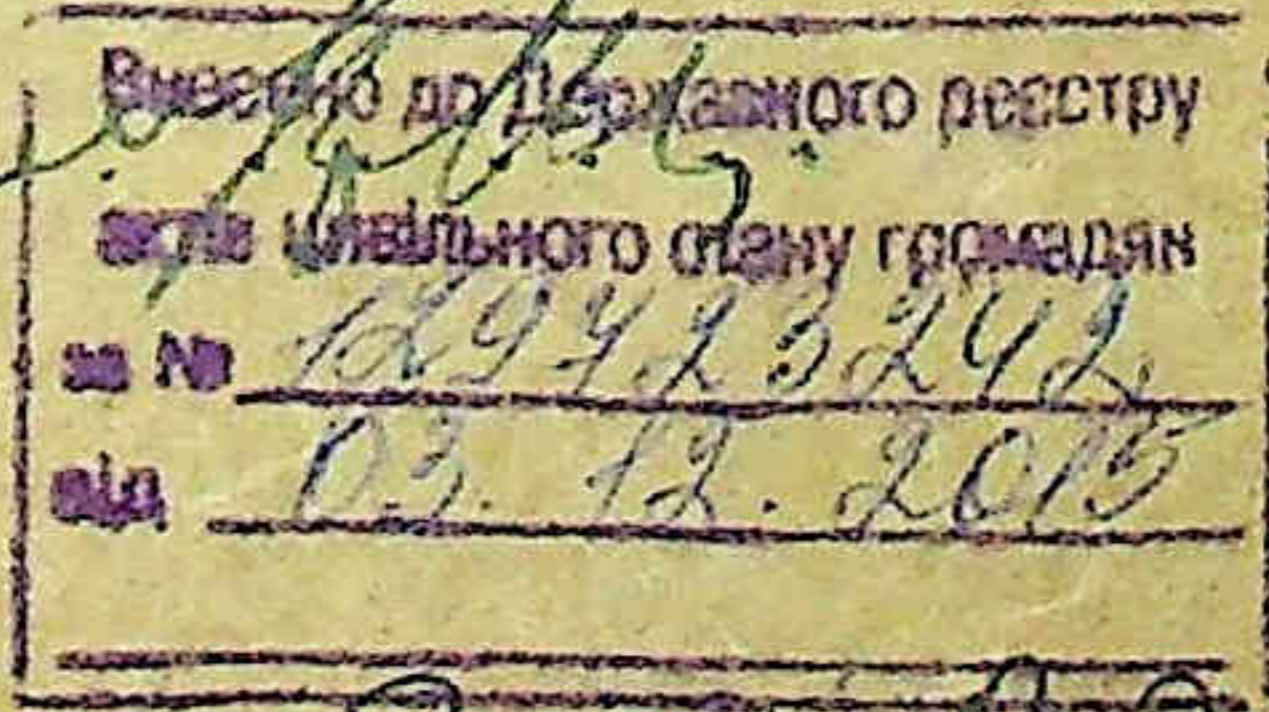 Внесено до Державного реєстру
актів цивільного стану громадян
за №
від 03.12.2015